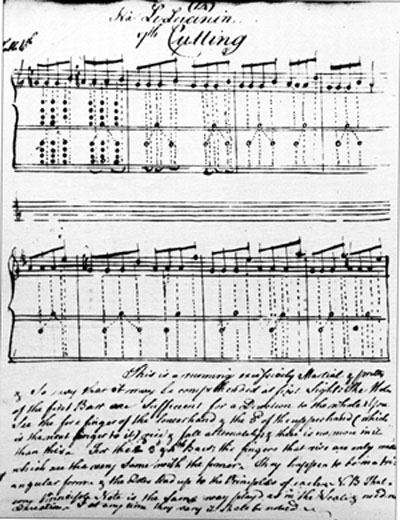 7th Cutting
This is a running excessively Martial & pretty
& So easy that it may be comprehended at first Sight. The Holes
of the first Barr are Sufficient for a Direction to the whole. You
See the fore finger of the lower hand & the E of the upper hand (which
is the next finger to it) rise & fall alternately & there is no more in it
than this. For the 2 & 3d Barr the fingers that rise are only
which are the very Same with the former. They happen to be in a tri
angular form & the Dotes lead up to the Principles of each N.B. That
every Principle Note is the same way play'd as in the Scale
they vary it shall be noted